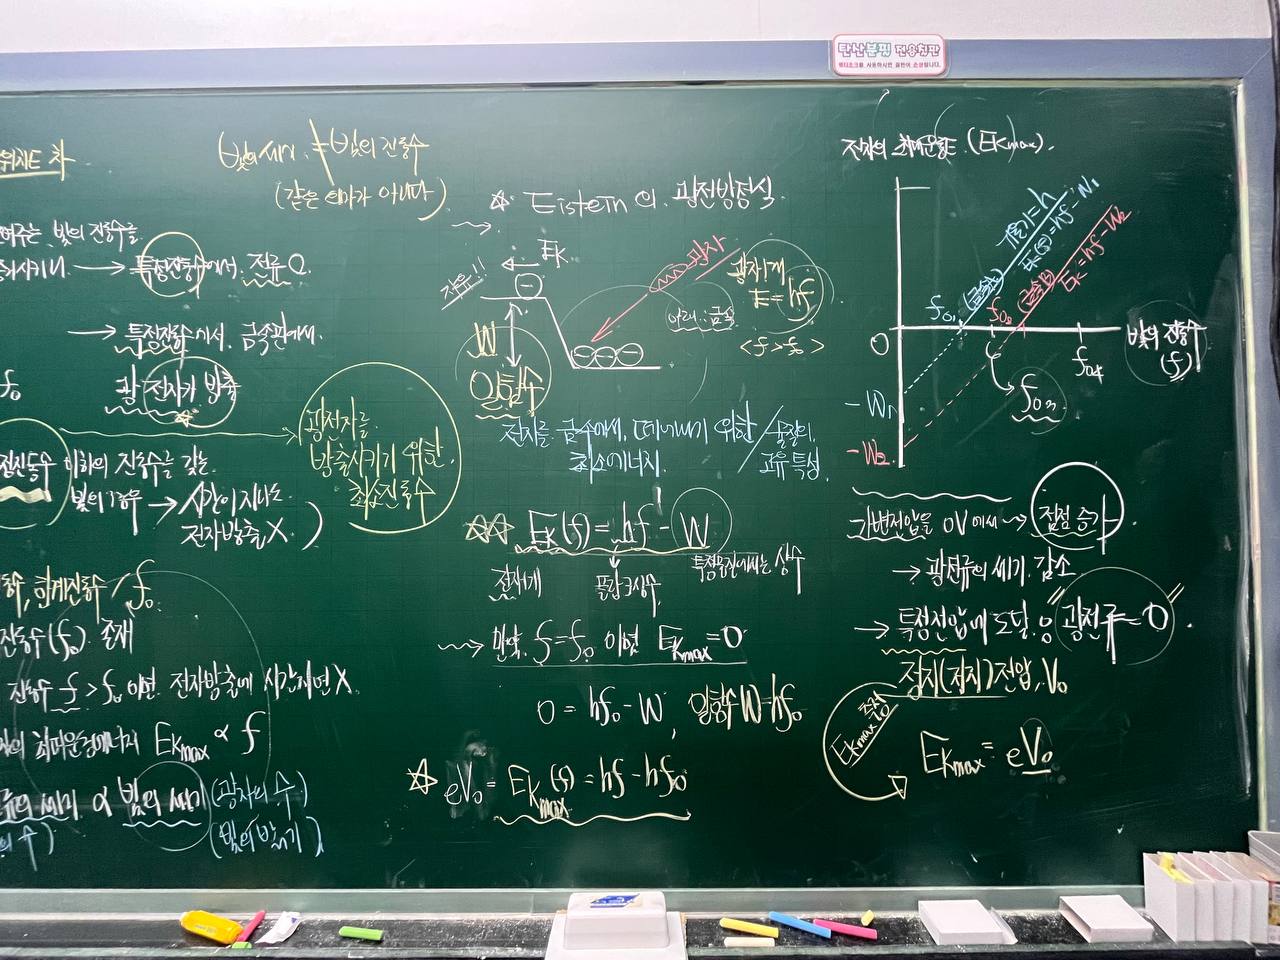 탄산분필 전용칠판
위치E 차
빛의 세기 ≠ 빛의 진동수
(같은 의미가 아니다)
여주는 빛의 진동수를
증가시키니 → 특정진동수에서 전류 O.
→ 특정진동수에서 금속판에서
광전자가 방출
f₀
광전자를
방출시키기 위한
최소진동수
이하의 진동수를 갖는
빛의 경우 → 시간이 지나도
전자방출 X
한계진동수 / f₀
진동수(f₀) 존재
진동수 f > f₀ 이면 전자방출에 시간지연 X.
최대운동에너지 Ekmax ∝ f
의 세기 ∝ 빛의 세기 (광자의 수)
의 수) (빛의 밝기)
☆ Eistein의 광전방정식
Ek
자유!!
광자
광자1개
E = hf
아래 : 금속
<f > f₀>
W
일함수
전자를 금속에서 떼어내기 위한 / 물질의
최소에너지. 고유 특성
☆☆ Ek(f) = hf - W
전자1개 플랑크상수 특정금속에서는 상수
만약 f = f₀ 이면 Ekmax = 0
0 = hf₀ - W, 일함수 W = hf₀
☆ eV₀ = Ekmax(f) = hf - hf₀
전자의 최대운동E (Ekmax).
기울기 = h
Ek(f) = hf - W₁
Ek = hf - W₂
f₀₁ (금속1) f₀₂ (금속2)
0
빛의 진동수
(f)
-W₁
-W₂
가변전압을 0V에서 → 점점 증가
→ 광전류의 세기 감소
→ 특정전압에 도달 광전류 = 0.
정지(저지)전압, V₀
Ekmax 측정
Ekmax = eV₀